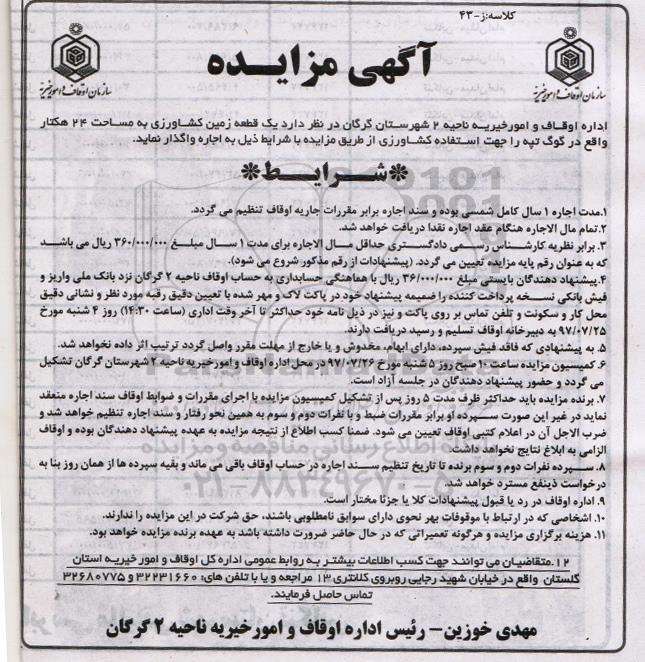 کلاسه:ز-۴۳
آگهی مزایده
سازمان اوقاف و امور خیریه
سازمان اوقاف و امور خیریه
اداره اوقاف و امورخیریه ناحیه ۲ شهرستان گرگان در نظر دارد یک قطعه زمین کشاورزی به مساحت ۲۴ هکتار
واقع در گوگ تپه را جهت استفاده کشاورزی از طریق مزایده با شرایط ذیل به اجاره واگذار نماید.
*شرایط*
۱.مدت اجاره ۱ سال کامل شمسی بوده و سند اجاره برابر مقررات جاریه اوقاف تنظیم می گردد.
۲.تمام مال الاجاره هنگام عقد اجاره نقدا دریافت خواهد شد.
۳. برابر نظریه کارشناس رسمی دادگستری حداقل مال الاجاره برای مدت ۱ سال مبلغ ۳۶۰/۰۰۰/۰۰۰ ریال می باشد
که به عنوان رقم پایه مزایده تعیین می گردد. (پیشنهادات از رقم مذکور شروع می شود).
۴.پیشنهاد دهندگان بایستی مبلغ ۳۶/۰۰۰/۰۰۰ ریال با هماهنگی حسابداری به حساب اوقاف ناحیه ۲ گرگان نزد بانک ملی واریز و
فیش بانکی نسخه پرداخت کننده را ضمیمه پیشنهاد خود در پاکت لاک و مهر شده با تعیین دقیق رقبه مورد نظر و نشانی دقیق
محل کار و سکونت و تلفن تماس بر روی پاکت و نیز در ذیل نامه خود حداکثر تا آخر وقت اداری (ساعت ۱۴:۳۰) روز ۴ شنبه مورخ
۹۷/۰۷/۲۵ به دبیرخانه اوقاف تسلیم و رسید دریافت دارند.
۵. به پیشنهادی که فاقد فیش سپرده، دارای ابهام، مخدوش و یا خارج از مهلت مقرر واصل گردد ترتیب اثر داده نخواهد شد.
۶. کمیسیون مزایده ساعت ۱۰ صبح روز ۵ شنبه مورخ ۹۷/۰۷/۲۶ در محل اداره اوقاف و امورخیریه ناحیه ۲ شهرستان گرگان تشکیل
می گردد و حضور پیشنهاد دهندگان در جلسه آزاد است.
۷. برنده مزایده باید حداکثر ظرف مدت ۵ روز پس از تشکیل کمیسیون مزایده با اجرای مقررات و ضوابط اوقاف سند اجاره منعقد
نماید در غیر این صورت سپرده او برابر مقررات ضبط و با نفرات دوم و سوم به همین نحو رفتار و سند اجاره تنظیم خواهد شد و
ضرب الاجل آن در اعلام کتبی اوقاف تعیین می شود. ضمنا کسب اطلاع از نتیجه مزایده به عهده پیشنهاد دهندگان بوده و اوقاف
الزامی به ابلاغ نتایج نخواهد داشت.
۸. سپرده نفرات دوم و سوم برنده تا تاریخ تنظیم سند اجاره در حساب اوقاف باقی می ماند و بقیه سپرده ها از همان روز بنا به
درخواست ذینفع مسترد خواهد شد.
۹. اداره اوقاف در رد یا قبول پیشنهادات کلا یا جزئا مختار است.
۱۰. اشخاصی که در ارتباط با موقوفات بهر نحوی دارای سوابق نامطلوبی باشند، حق شرکت در این مزایده را ندارند.
۱۱. هزینه برگزاری مزایده و هرگونه تعمیراتی که در حال حاضر ضرورت داشته باشد به عهده برنده مزایده خواهد بود.
۱۲.متقاضیان می توانند جهت کسب اطلاعات بیشتر به روابط عمومی اداره کل اوقاف و امور خیریه استان
گلستان واقع در خیابان شهید رجایی روبروی کلانتری ۱۳ مراجعه و یا با تلفن های: ۳۲۲۳۱۶۶۰ و ۳۲۶۸۰۷۷۵
تماس حاصل فرمایند.
مهدی خوزین- رئیس اداره اوقاف و امورخیریه ناحیه ۲ گرگان